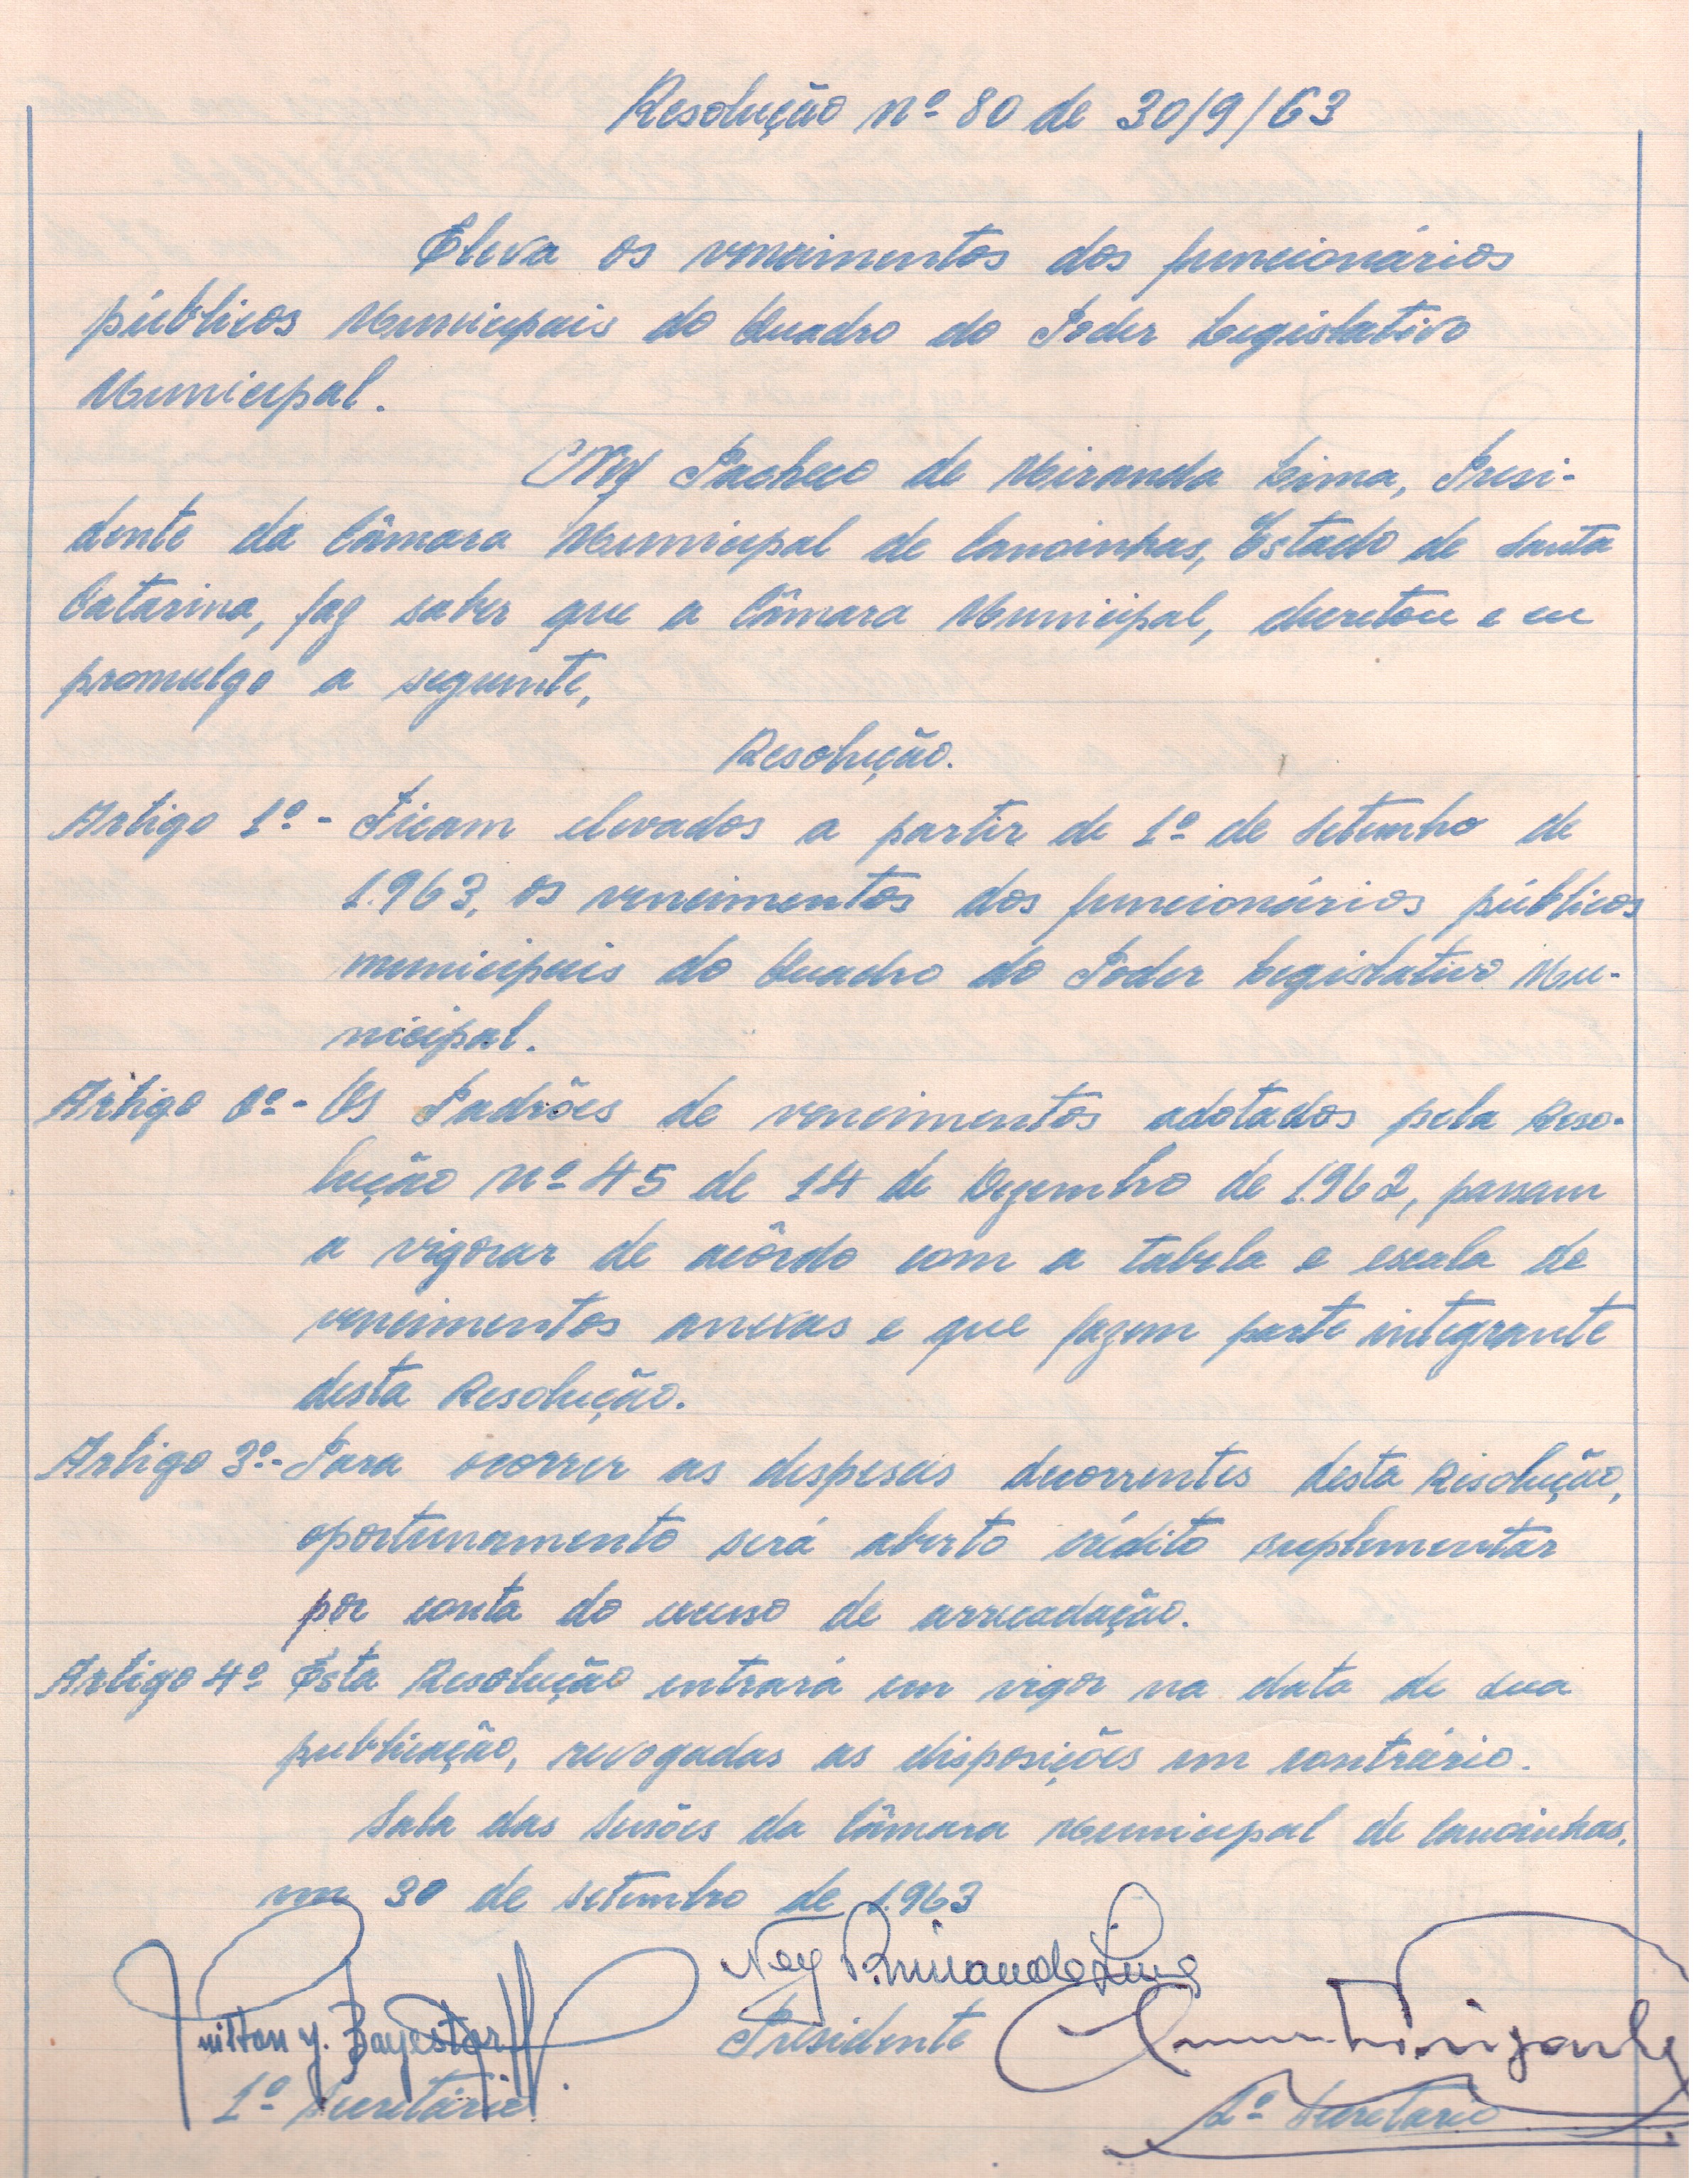 Resolução nº 80 de 30/9/63
Eleva os vencimentos dos funcionários
públicos Municipais do Quadro do Poder Legislativo
Municipal.
Ney Pacheco de Miranda Lima, Presi-
dente da Câmara Municipal de Canoinhas, Estado de Santa
Catarina, faz saber que a Câmara Municipal, decretou e eu
promulgo a seguinte,
Resolução.
Artigo 1º - Ficam elevados a partir de 1º de Setembro de
1.963, os vencimentos dos funcionários públicos
municipais do Quadro do Poder Legislativo Mu-
nicipal.
Artigo 2º - Os Padrões de vencimentos adotados pela Reso-
lução nº 45 de 14 de Dezembro de 1.962, passam
a vigorar de acôrdo com a tabela e escala de
vencimentos anexas e que fazem parte integrante
desta Resolução.
Artigo 3º - Para ocorrer as despesas decorrentes desta Resolução,
oportunamento será aberto crédito suplementar
por conta do excesso de arrecadação.
Artigo 4º Esta Resolução entrará em vigor na data de sua
publicação, revogadas as disposições em contrário.
Sala das Sessões da Câmara Municipal de Canoinhas,
em 30 de setembro de 1.963
Ney P. Miranda Lima
Presidente
Bayestorff
1º Secretário
2º Secretario